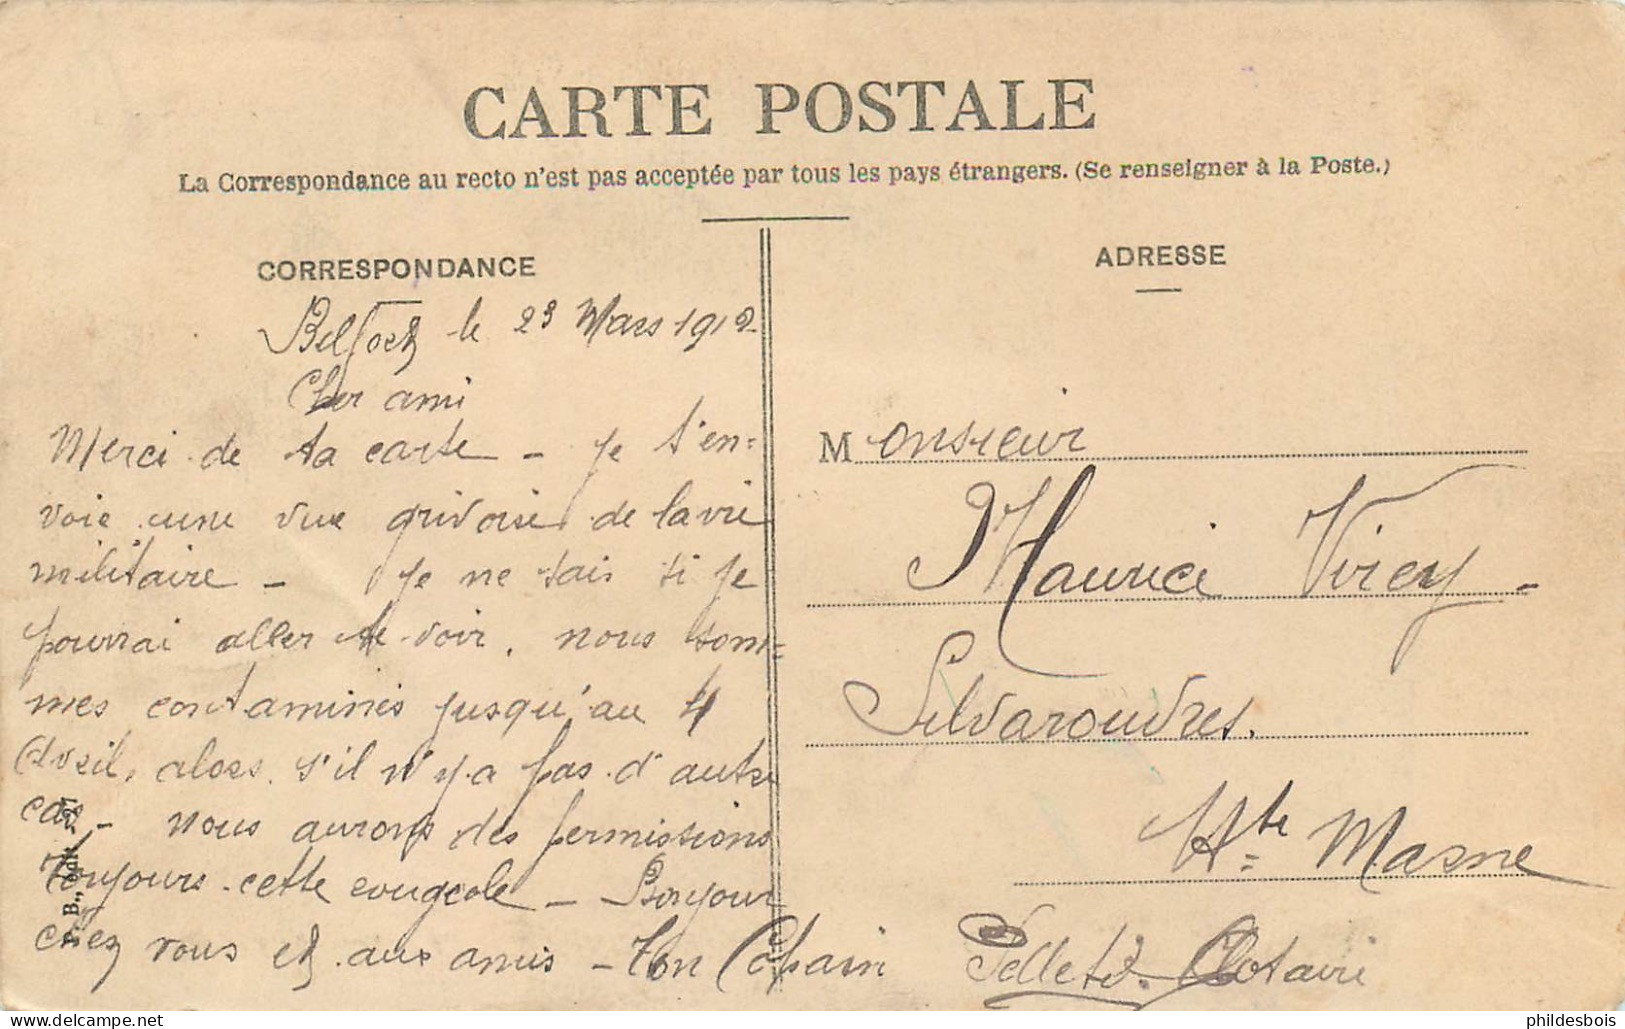 CARTE POSTALE
La Correspondance au recto n'est pas acceptée par tous les pays étrangers. (Se renseigner à la Poste.)
CORRESPONDANCE
Belfort le 23 Mars 1912
Cher ami
Merci de ta carte - je t'en=
voie une vue grivoise de la vie
militaire - je ne sais si je
pourrai aller te voir. nous som=
mes contaminés jusqu'au 4
Avril, alors s'il n'y a pas d'autre
cas - nous aurons des permissions
Toujours cette rougeole - Bonjour
chez vous et aux amis - Ton Copain
Pelletd. Clotaire
ADRESSE
Monsieur
Maurice Virey -
Selvaroudres.
Hte Marne
B., édit
phildesbois